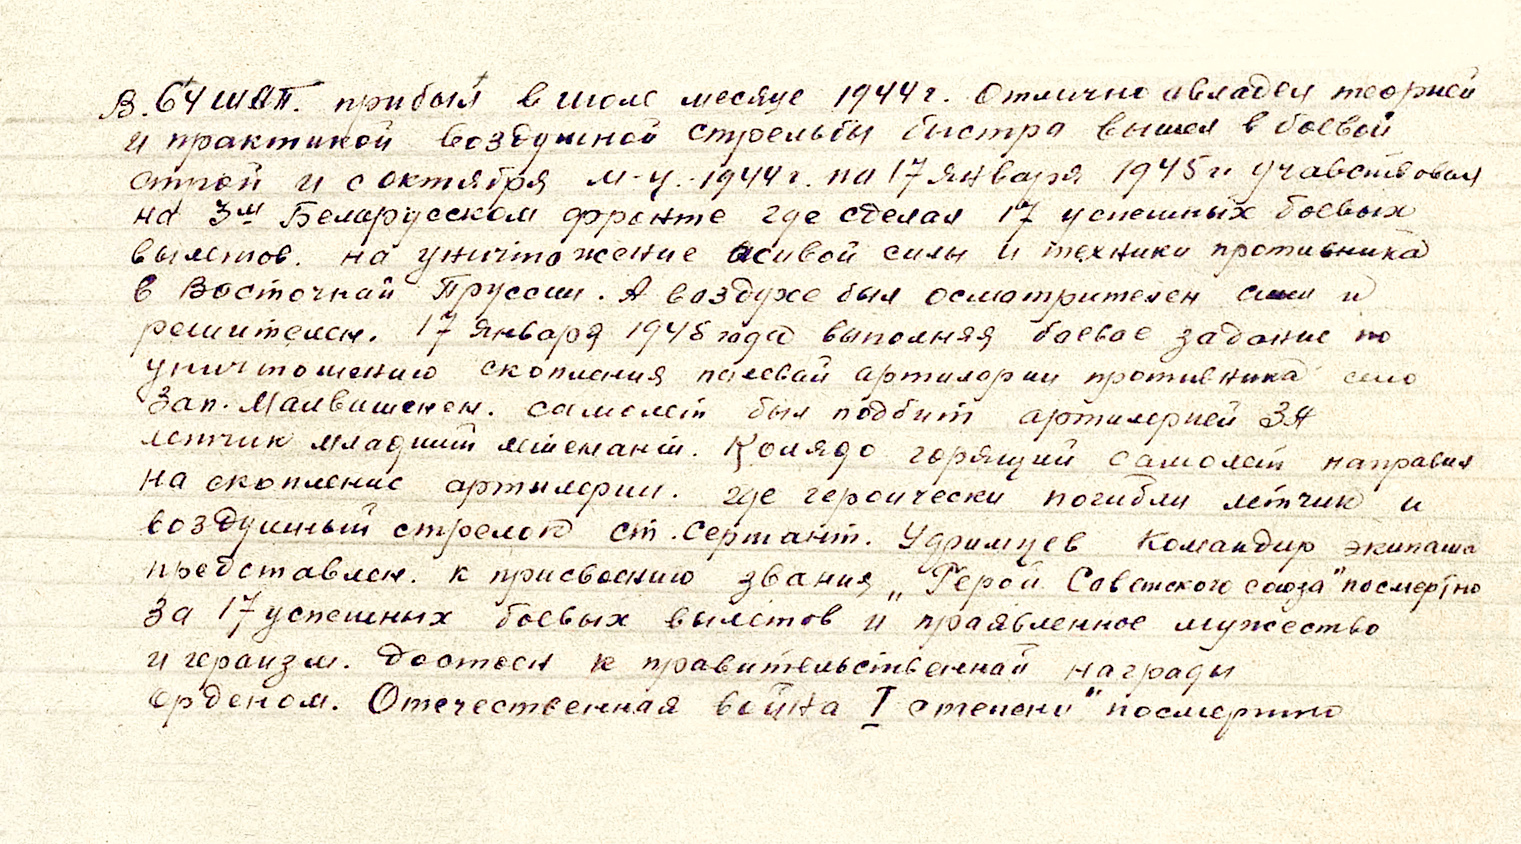 В. 64 ШАП. прибыл в июле месяце 1944 г. Отлично авладел теорией
и практикой воздушной стрельбы быстра вышел в боевой
строй и с октября м-ц. 1944 г. па 17 января 1945 г. учавствовал
на 3м Беларусском фронте где сделал 17 успешных боевых
вылетов. на уничтожение живой силы и техники противника
в Восточнай Пруссии. А воздухе был осмотрителен смел и
решителен. 17 января 1945 года выполняя боевое задание по
уничтожению скопления палевай артилерии противника
Зап. Малвишенен. самолет был подбит артилерией ЗА
летчик младший летенант. Колядо горящий самолет направил
на скопление артилерии. где героически погибли летчик и
воздушный стрелок ст. Сержант. Удримцев Командир экипажа
представлен. к присвоению звания „Герой Саветского союза" посмертно
За 17 успешных боевых вылетов и праявленное мужество
и гераизм. Достоен к правительственнай награды
Орденом. Отечественная война I степени" посмертно